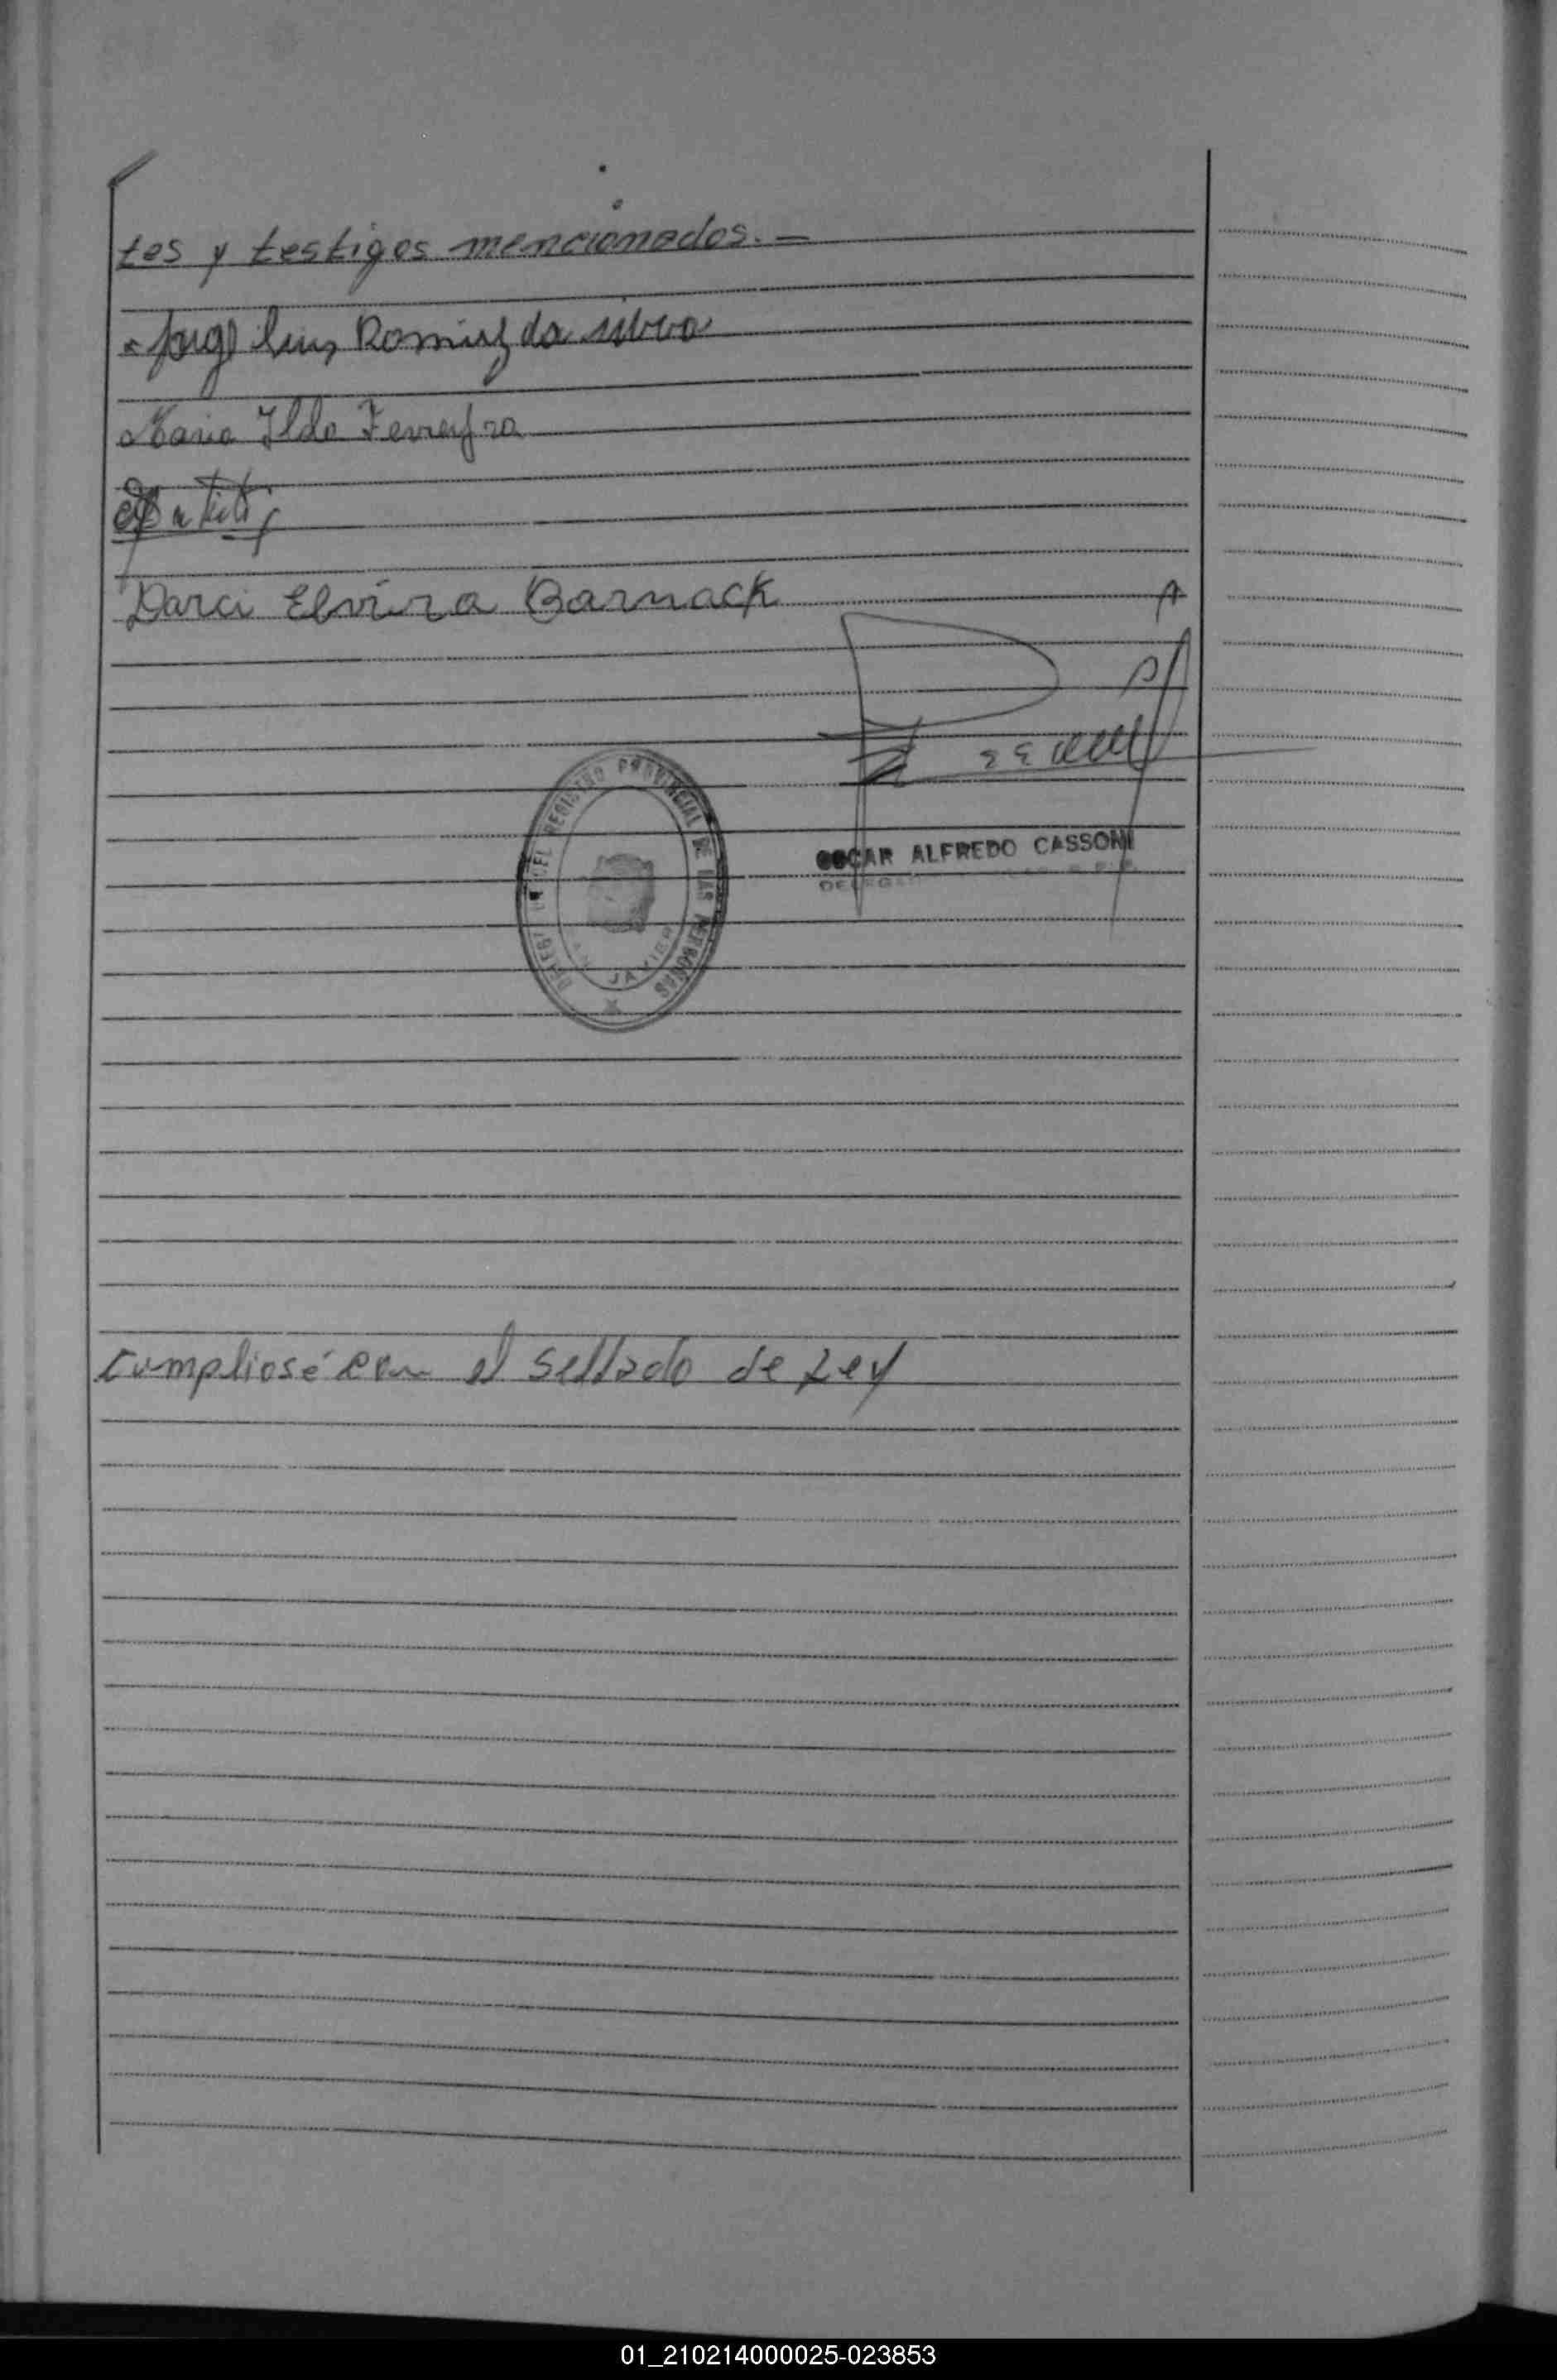 tes y testigos mencionados.—
Jorge Luis Ramirez da silva
Maria Ilda Ferreyra
Darci Elvira Barnack
OSCAR ALFREDO CASSONI
REGISTRO PROVINCIAL DE LAS PERSONAS
JAVIER
cumpliosé con el sellado de Ley
01_210214000025-023853